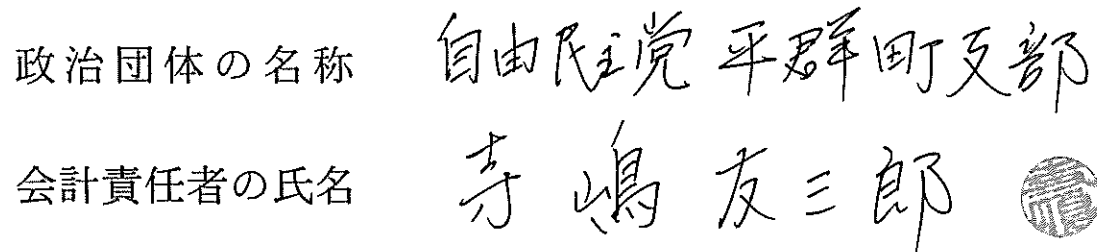 政治団体の名称 自由民主党平群町支部
会計責任者の氏名 寺嶋友三郎